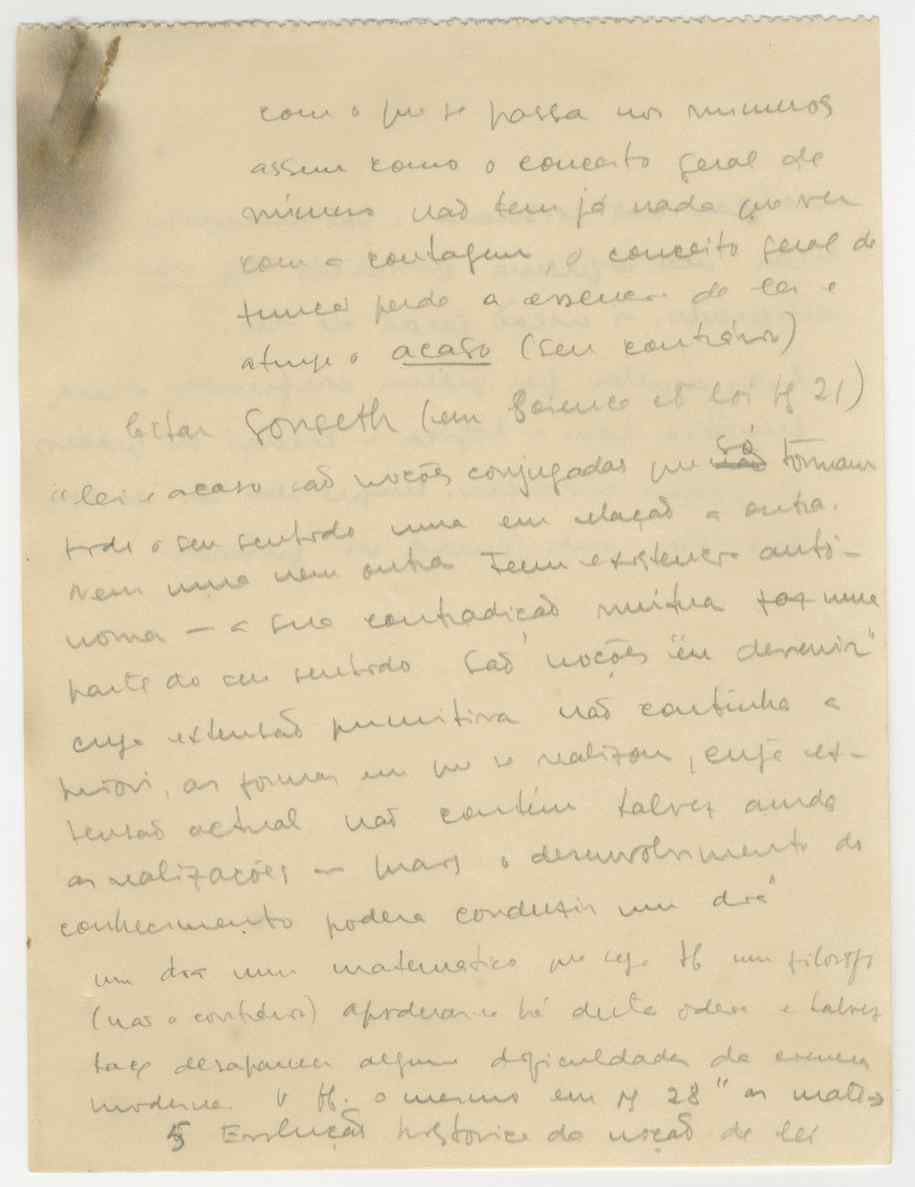 com o que se passa nos números
assim como o conceito geral de
número não tem já nada que ver
com a contagem o conceito geral de
função perde a essência de lei e
atinge o acaso (seu contrário)
Citar Gonseth (em Science et loi pg 21)
"lei e acaso são noções conjugadas que só tomam
todo o seu sentido uma em relação a outra.
Nem uma nem outra tem existência autó-
noma — a sua contradição mútua faz uma
parte do seu sentido São noções "en devenir"
cuja extensão primitiva não continha a
priori, as formas em que se realizou, cuja ex-
tensão actual não contém talvez ainda
as realizações a mais o desenvolvimento do
conhecimento poderá conduzir um dia"
um dia um matemático que seja tb um filosofo
(não o contrário) apoderar-se há desta ideia e talvez
faça desaparecer algumas dificuldades da ciencia
moderna. V tb. o mesmo em pg 28 " as mat
5 Evolução histórica da noção de lei